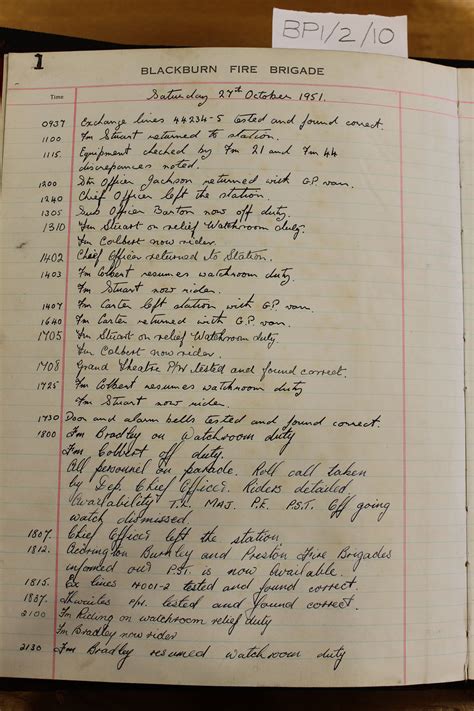 BP1/2/10
1
BLACKBURN FIRE BRIGADE
Time Saturday 27th October 1951.
0937 Exchange lines 44234-5 tested and found correct.
1100 Fm Stuart returned to station.
1115. Equipment checked by Fm 21 and Fm 44
discrepances noted.
1200 Stn Officer Jackson returned with G.P. van.
1240 Chief Officer left the station.
1305 Sub Officer Barton now off duty.
1310 Fm Stuart on relief Watchroom duty.
Fm Colbert now rider.
1402 Chief Officer returned to Station.
1403 Fm Colbert resumes watchroom duty
Fm Stuart now rider.
1407 Fm Carter left station with G.P. van.
1640 Fm Carter returned with G.P. van.
1705 Fm Stuart on relief Watchroom duty
Fm Colbert now rider.
1708 Grand Theatre P/W tested and found correct.
1725 Fm Colbert resumes watchroom duty
Fm Stuart now rider.
1730 Door and alarm bells tested and found correct.
1800 Fm Bradley on Watchroom duty
Fm Colbert off duty.
All personnel on parade. Roll call taken
by Dep. Chief Officer. Riders detailed
Availability T.L. MAJ. P.E. P.S.T. Off going
watch dismissed.
1807. Chief Officer left the station
1812. Accrington Burnley and Preston Fire Brigades
informed our P.S.T. is now available.
1815. Ex lines 4001-2 tested and found correct.
1837. Thwaites P/W. tested and found correct.
2100 Fm Riding on watchroom relief duty
Fm Bradley now rider
2130 Fm Bradley resumed watchroom duty